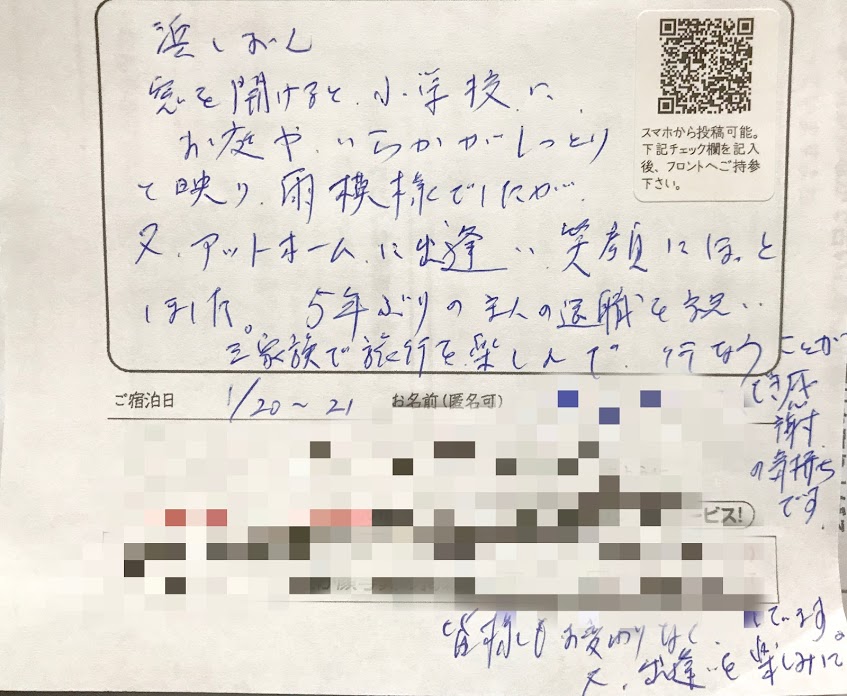 浜しおん
窓を開けると、小学校に
お庭や、いらかがしっとり
て映り、雨模様でしたが、
又、アットホームに出逢い、笑顔にほっと
しました。 5年ぶりの主人の退職を祝い
三家族で旅行を楽しんで、行なうことが
でき感
謝
の気持ち
です
スマホから投稿可能。
下記チェック欄を記入
後、フロントへご持参
下さい。
ご宿泊日 1/20～21 お名前(匿名可)
ービス!
皆様もお変わりなく、
又、出逢いを楽しみに
しています。